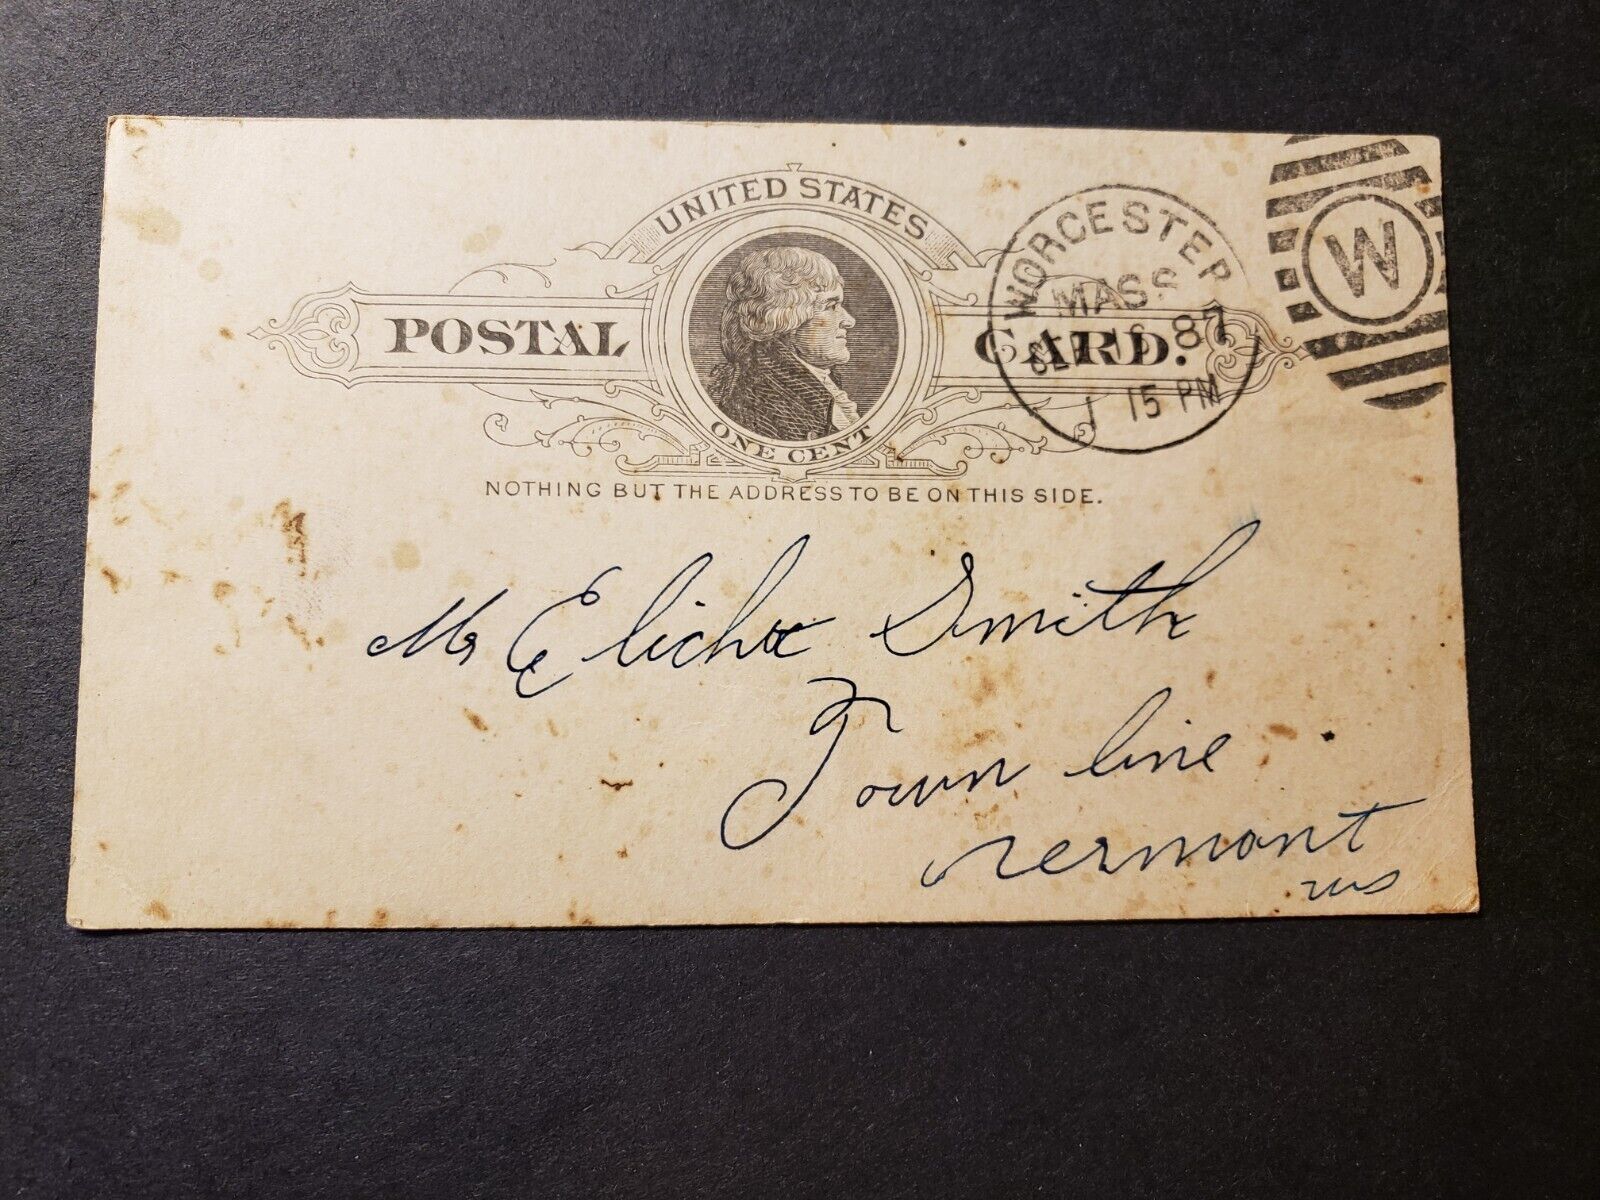 UNITED STATES
POSTAL CARD.
ONE CENT
NOTHING BUT THE ADDRESS TO BE ON THIS SIDE.
WORCESTER
MASS
87
1 15 PM
W
Smith
Town line
Vermont